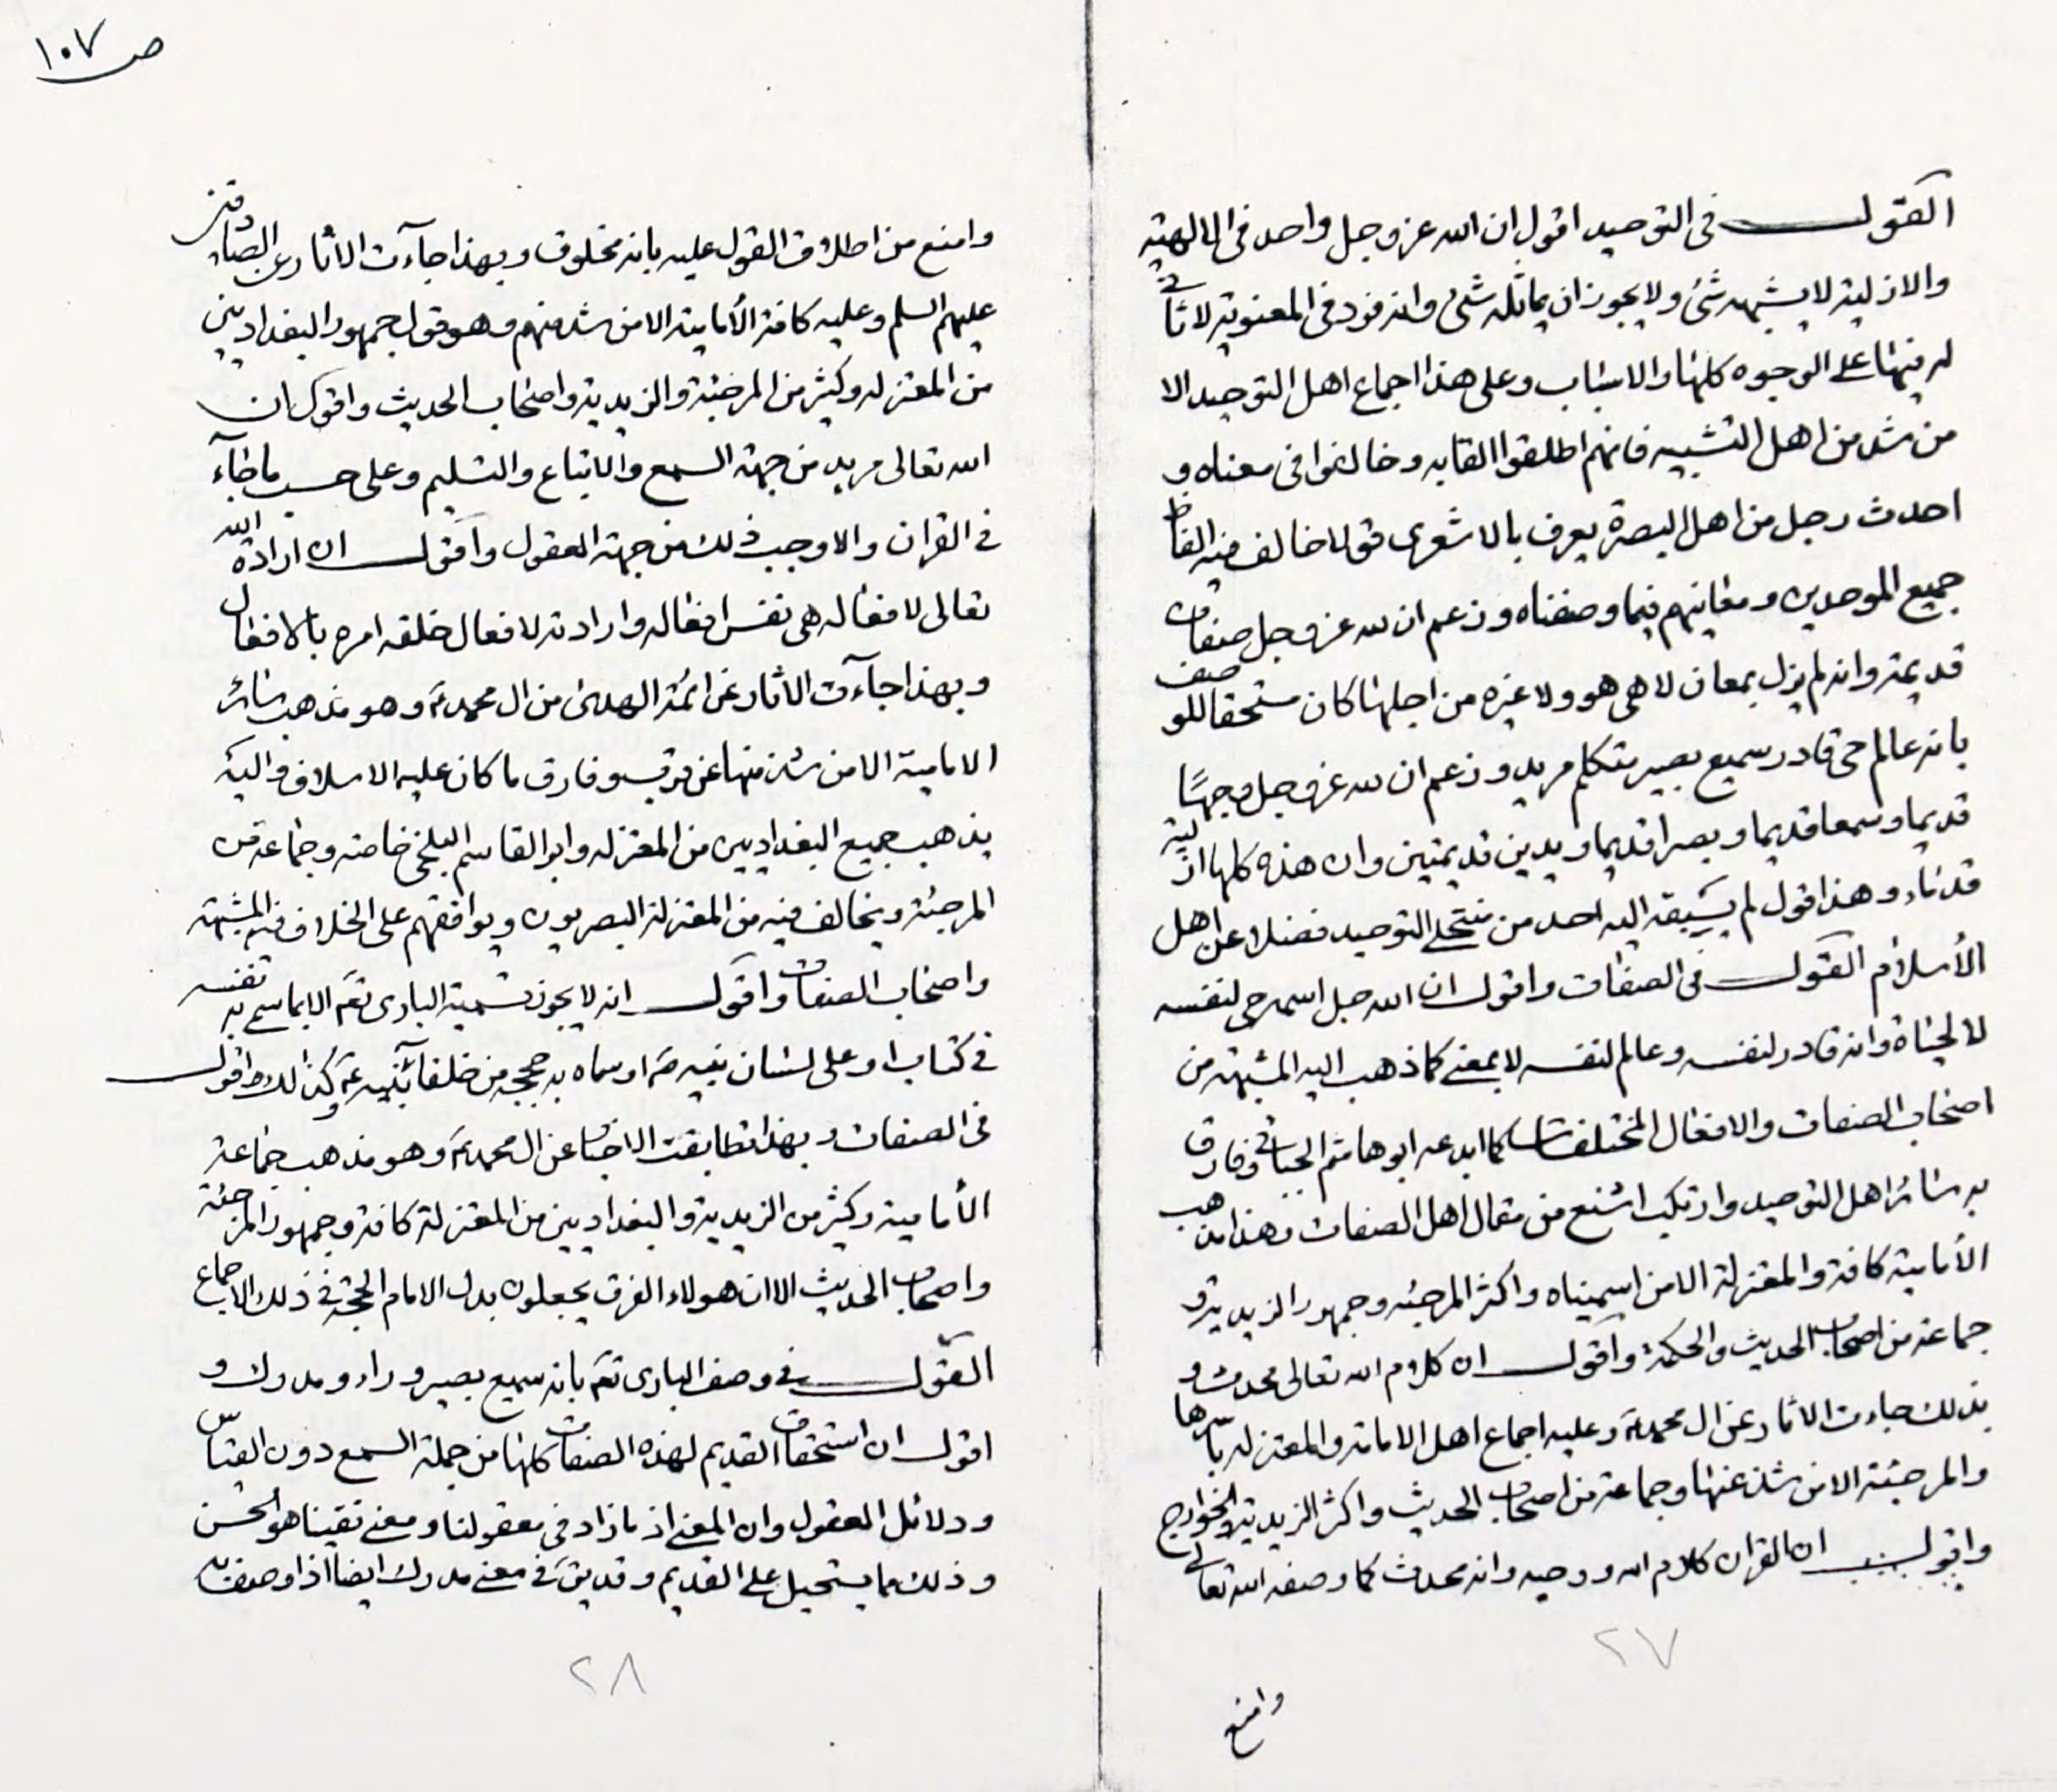 القول في التوحيد اقول ان الله عز وجل واحد في الالهية
والازلية لا يشبهه شئ ولا يجوز ان يماثله شئ وانه فرد في المعنوية لا ثاني
له فيها على الوجوه كلها والاسباب وعلى هذا اجماع اهل التوحيد الا
من شذ من اهل التشبيه فانهم اطلقوا القابه وخالفوا في معناه و
احدث رجل من اهل البصرة يعرف بالاشعرى قولا خالف فيه الفاظ
جميع الموحدين ومعانيهم فيما وصفناه وزعم ان لله عز وجل صفات
قديمة وانه لم يزل بمعان لا هي هو ولا غيره من اجلها كان مستحقا للوصف
بانه عالم حى قادر سميع بصير متكلم مريد وزعم ان لله عز وجل وجهًا
قديما وسمعا قديما وبصرا قديما ويدين قديمتين وان هذه كلها ازلية
قدماء وهذا قول لم يسبقه اليه احد من منتحلى التوحيد فضلا عن اهل
الأسلام القول في الصفات واقول ان الله جل اسمه حى لنفسه
لا لحياة وانه قادر لنفسه وعالم لنفسه لا بمعنى كما ذهب اليه المشبهة من
اصحاب الصفات والافعال المختلفات كما ابدعه ابو هاشم الجبائى وفارق
به سائر اهل التوحيد وارتكب اشنع من مقال اهل الصفات وهذا مذهب
الأمامية كافة والمعتزلة الا من اسميناه واكثر المرجئه وجمهور الزيدية و
جماعة من اصحاب الحديث والحكمة واقول ان كلام الله تعالى محدث و
بذلك جاءت الاثار عن ال محمدؑ وعليه اجماع اهل الامامة والمعتزله باسرها
والمرجئة الا من شذ عنها وجماعة من اصحاب الحديث واكثر الزيدية والخوارج
واقول ان القران كلام الله ووحيه وانه محدث كما وصفه الله تعالى
٢٧
وامنع
ص ١٠٧
وامنع من اطلاق القول عليه بانه مخلوق وبهذا جآءت الاثار عن الصادقين
عليهم السلم وعليه كافة الأمامية الا من شذ منهم وهو قول جمهور البغداديين
من المعتزله وكثير من المرجئة والزيدية واصحاب الحديث واقول ان
الله تعالى مريد من جهة السمع والاتباع والتسليم وعلى حسب ما جآء
في القران والا وجب ذلك من جهة العقول واقول ان ارادة الله
تعالى لافعاله هى نفس افعاله وارادته لافعال خلقه امره بالافعال
وبهذا جآءت الاثار عن ائمة الهدى من ال محمدؑ وهو مذهب سائر
الامامية الا من شذ منها عن قرب وفارق ما كان عليه الاسلاف واليه
يذهب جميع البغداديين من المعتزله وابو القاسم البلخى خاصة وجماعة من
المرجئة ويخالف فيه من المعتزلة البصريون ويوافقهم على الخلاف فيه المشبهة
واصحاب الصفات واقول انه لا يجوز تسمية البارى تعؔ الا بما سمى به نفسه
في كتابه او على لسان نبيهؐ او سماه به حججه من خلفآء نبيهؑ وكذلك واقول
في الصفات وبهذا تطابقت الاخبار عن ال محمدؑ وهو مذهب جماعة
الأمامية وكثير من الزيدية والبغداديين من المعتزلة كافة وجمهور المرجئة
واصحاب الحديث الا ان هولاء الفرق يجعلون بدل الامام الحجة في ذلك الاجماع
القول في وصف البارى تعؔ بانه سميع بصير وراء ومدرك و
اقول ان استحقاق القديم لهذه الصفات كلها من جملة السمع دون القياس
ودلائل العقول وان المعنى اذ ما زاد في معقولنا ومعنى نقيضا هو الحسن
وذلك مما يستحيل على القديم وقد يقؔ في معنى مدرك ايضا اذا وصف به
٢٨